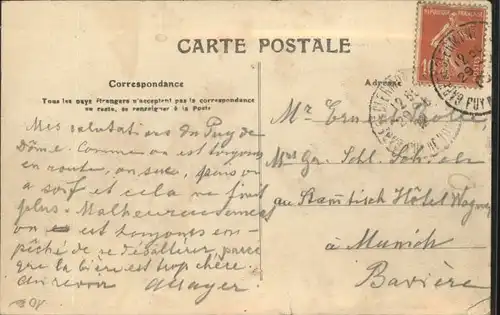 CARTE POSTALE
Correspondance
Tous les pays étrangers n'acceptent pas la correspondance
au recto, se renseigner à la Poste
Mes salutations du Puy de
Dôme. Comme on est toujours
en route, on sue, puis on
a soif et cela ne finit
plus. Malheureusement
on est toujours em-
pêché de se désaltérer parce
que la bière est trop chère.
Au revoir
Adresse
REPUBLIQUE FRANÇAISE
Mr Ernest
Gr. Schl.
au Stam̄tisch Hôtel Wagner
à Munich
Bavière